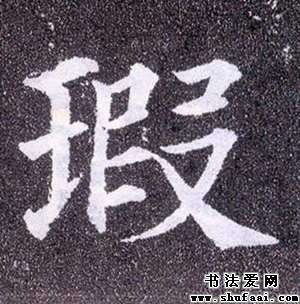 瑕
书法爱网
www.shufaai.com